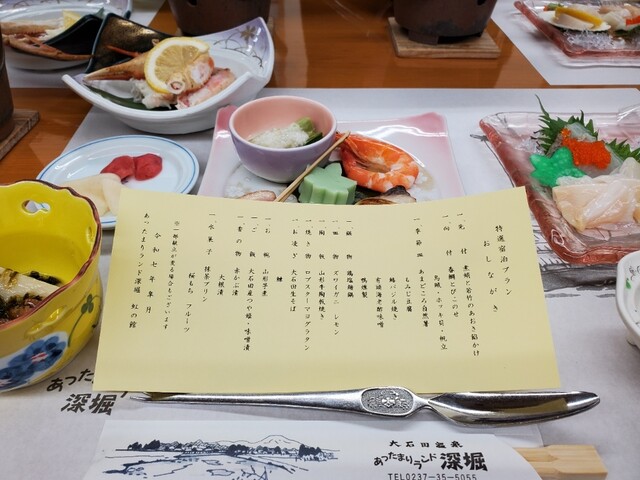 特選宿泊プラン
おしながき
一、先 付 煮鯛と若竹のあおさ餡かけ
一、向 付 春鯛とぴこのせ
馬鈴・ホッキ貝・帆立
一、季節皿 あまどころ自然薯
もみじ豆腐
鯵バジル焼き
有頭海老酢味噌
鴨燻製
一、鍋 物 鶏塩麹鍋
一、皿 物 ズワイガニ レモン
一、陶 板 山形牛陶板焼き
一、焼き物 ロブスターマヨグラタン
一、お凌ぎ 大石田生そば
鯉
一、お 椀 山形芋煮
一、ご 飯 大石田産つや姫・味噌漬
一、香の物 赤かぶ漬
大根漬
一、水菓子 抹茶プリン
桜もち フルーツ
※一部献立が異なる場合もございます
令和七年皐月
あったまりランド深堀 虹の館
あったまり
深堀
大石田温泉
あったまりランド 深堀
TEL0237-35-5055